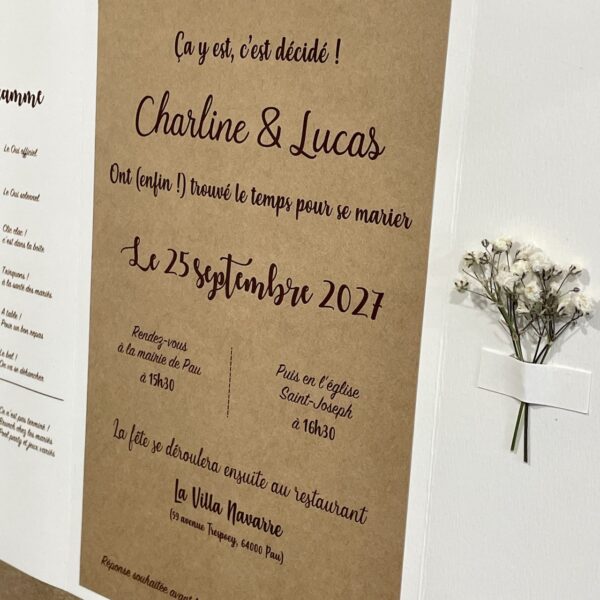 Le Oui officiel
Le Oui solennel
Clic clac !
c'est dans la boîte
Trinquons !
à la santé des mariés
A table !
Pour un bon repas
Le bal !
On va se déhancher
On n'est pas terminé !
Brunch chez les mariés
Ça y est, c'est décidé !
Charline & Lucas
Ont (enfin !) trouvé le temps pour se marier
Le 25 septembre 2027
Rendez-vous
à la mairie de Pau
à 15h30
Puis en l'église
Saint-Joseph
à 16h30
La fête se déroulera ensuite au restaurant
La Villa Navarre
(59 avenue Trespoey, 64000 Pau)
Réponse souhaitée avant